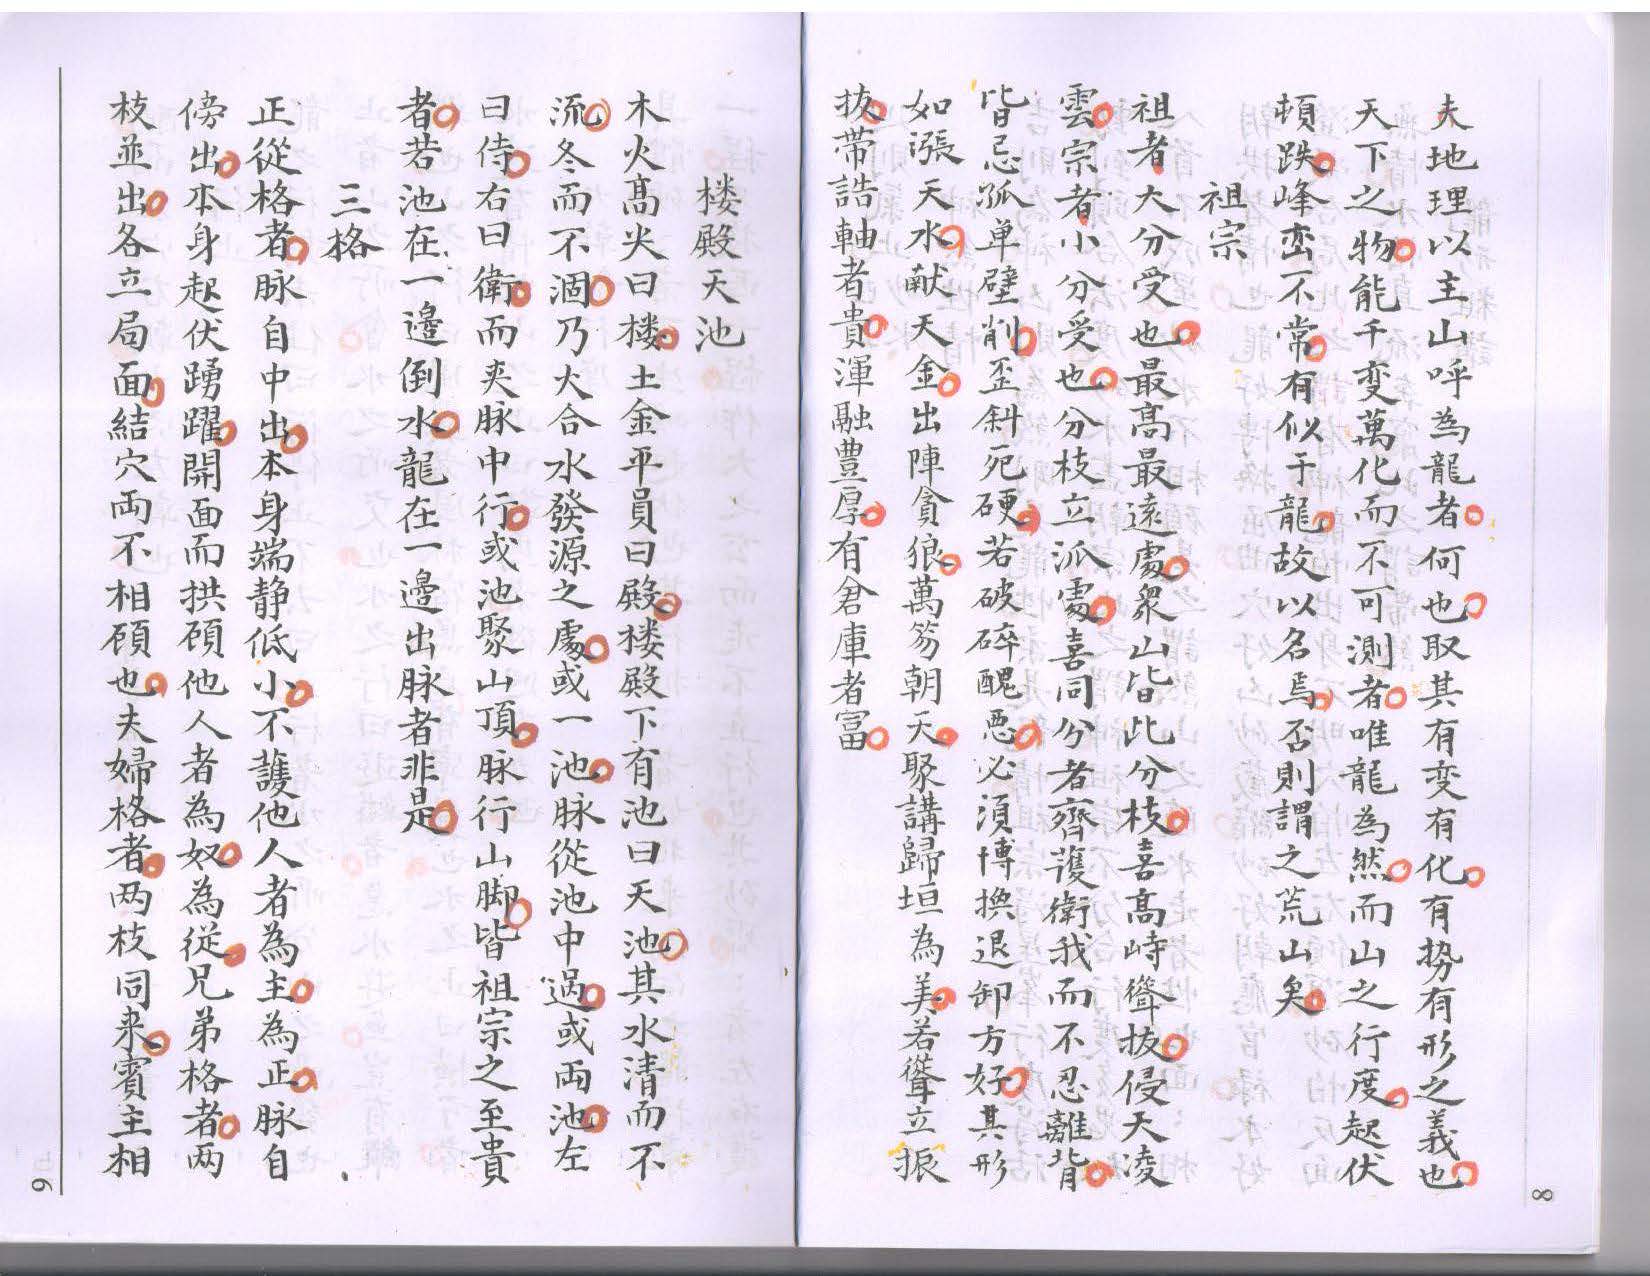 夫地理以主山呼為龍者何也取其有变有化有势有形之義也
天下之物能千变萬化而不可測者唯龍為然而山之行度起伏
頓跌峰峦不常有似于龍故以名焉否則謂之荒山矣
祖宗
祖者大分受也最高最遠處衆山皆此分枝喜高峙聳拔侵天凌
雲宗者小分受也分枝立派處喜同分者齊護衛我而不忍離背
皆忌孤单壁削歪斜死硬若破碎醜惡必須博換退卸方好其形
如漲天水献天金出陣貪狼萬笏朝天聚講歸垣為美若聳立振
拔带誥軸者貴渾融豊厚有倉庫者富
8
楼殿天池
木火高尖曰楼土金平員曰殿楼殿下有池曰天池其水清而不
流冬而不涸乃大合水發源之處或一池脉從池中過或両池左
曰侍右曰衛而夹脉中行或池聚山頂脉行山脚皆祖宗之至貴
者若池在一邉倒水龍在一邉出脉者非是
三格
正從格者脉自中出本身端静低小不護他人者為主為正脉自
傍出本身起伏踴躍開面而拱顧他人者為奴為從兄弟格者两
枝並出各立局面結穴両不相顧也夫婦格者两枝同来賓主相
9